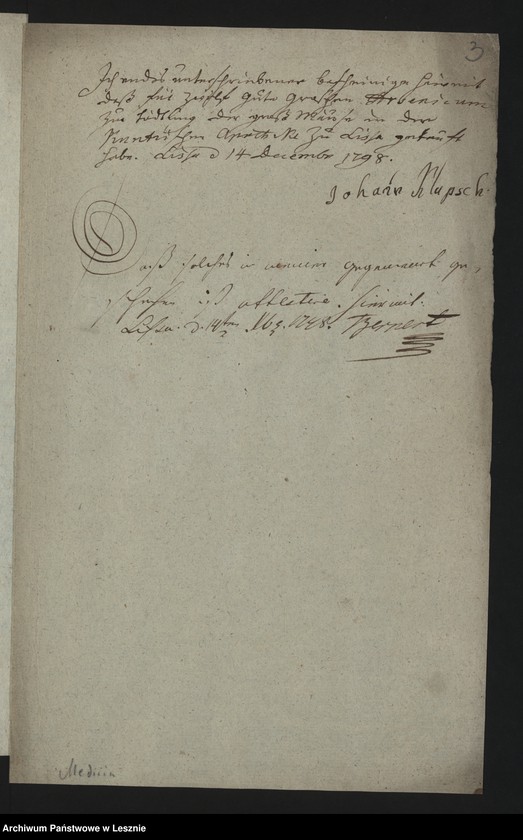 3
Ich endes unterschriebener bescheinige hiermit
daß für zwölf gute Groschen Arsenicum
zur Tödtung der groß Mäuse in der
Apotheke zu Lissa gekauft
habe. Lissa d 14 Decembr 1798.
Johann Klupsch.
Daß solches in meiner Gegenwart ge,
schehen ist attestire hiermit.
Lissa. d. 14ten 1798.
Medicin
Archiwum Państwowe w Lesznie